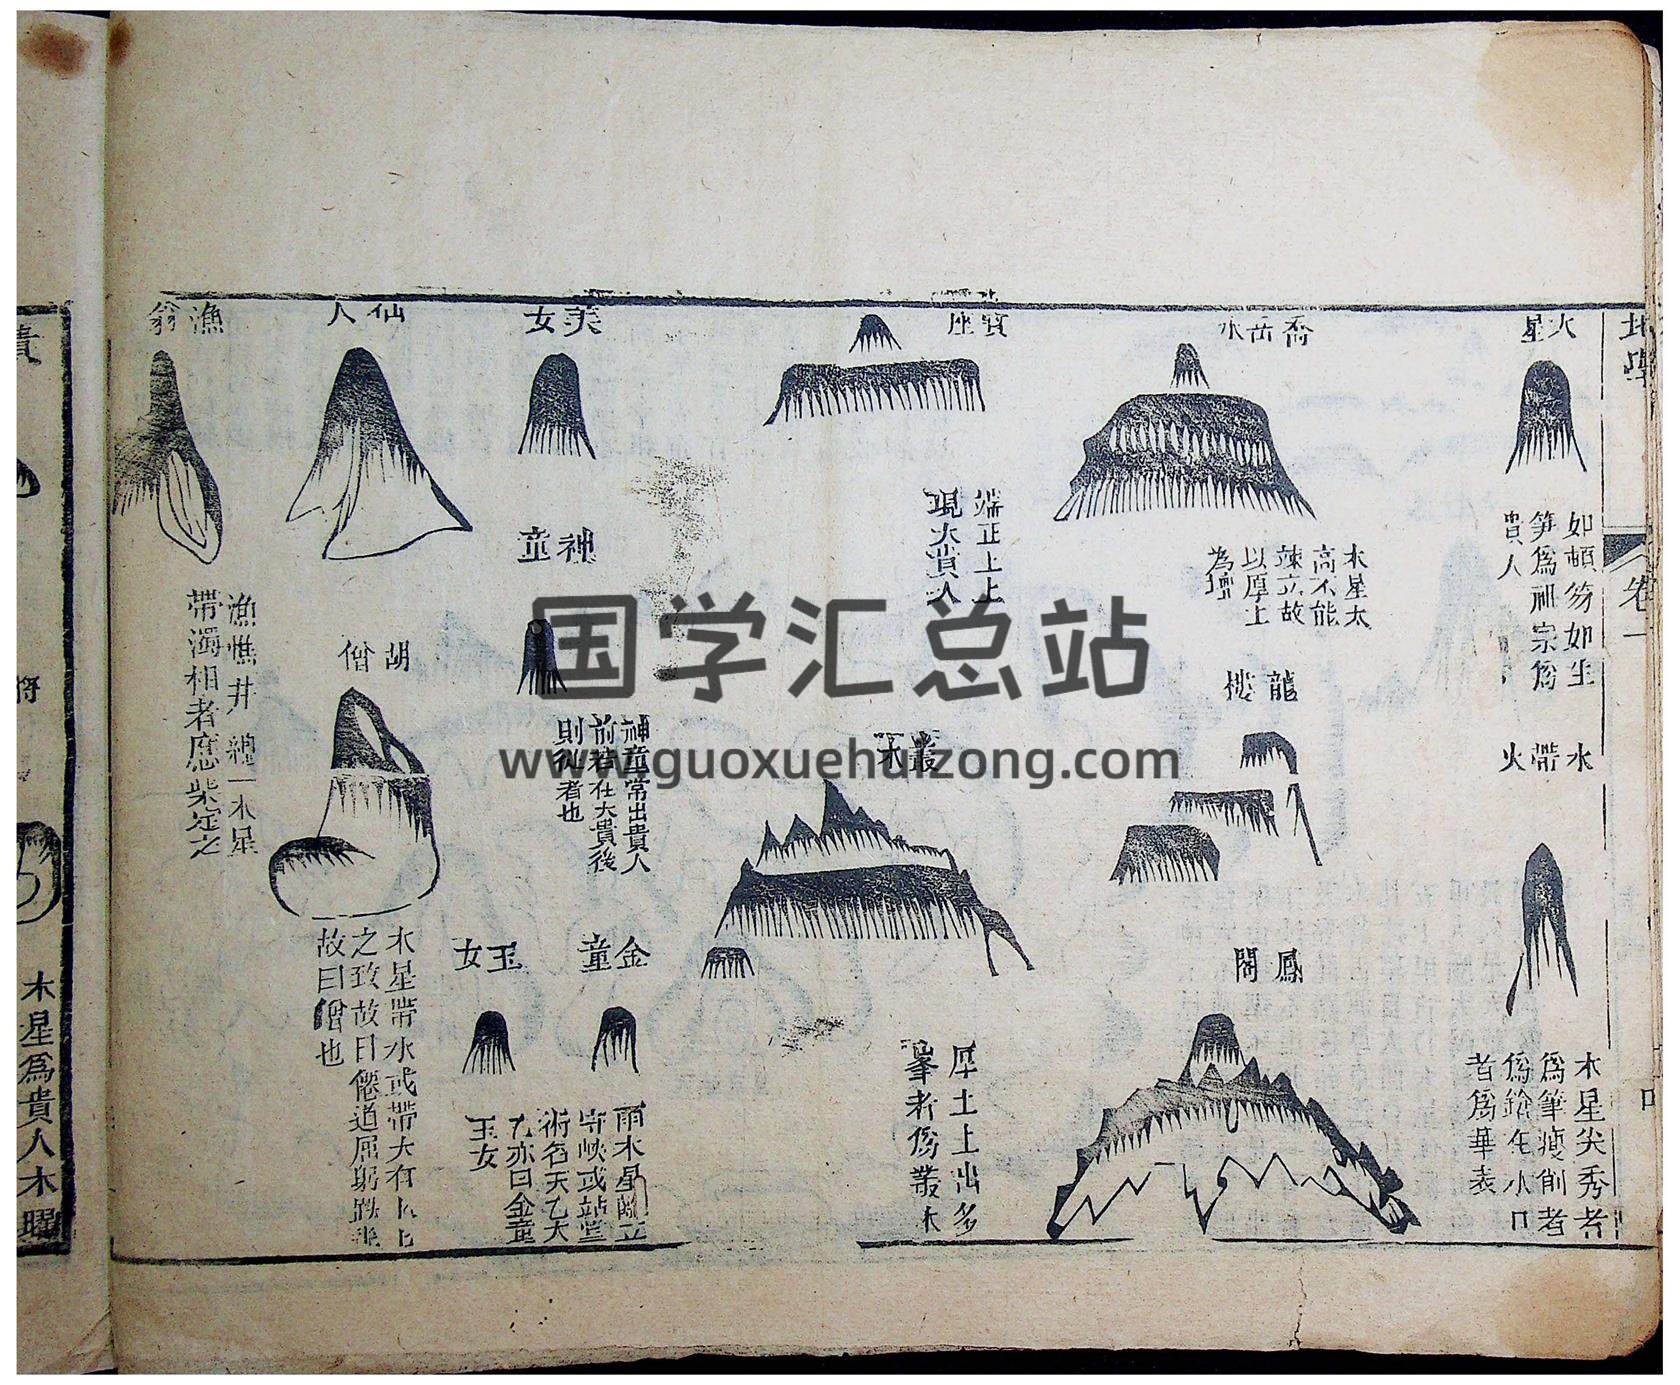 火星
如頓笏如生
笋為祖宗為
貴人
水帶火
木星尖秀者
為筆瘦削者
為鎗在水口
者為華表
喬岳水
木星太
高不能
竦立故
以厚土
為壇
龍樓
鳳閣
寳座
端正上上
現大貴人
叢木
厚土上出多
峯者為叢木
美女
神童
神童常出貴人
前若在大貴後
則從者也
金童
玉女
兩木星
峙峽或站堂
術名天乙太
乙亦曰金童
玉女
仙人
胡僧
木星帶水或帶
之致故曰僊道屈躬
故曰僧也
漁翁
漁樵井 總一木星
帶濁相者應柴定之
卷一
貴
將
木星為貴人木曜
国学汇总站
www.guoxuehuizong.com